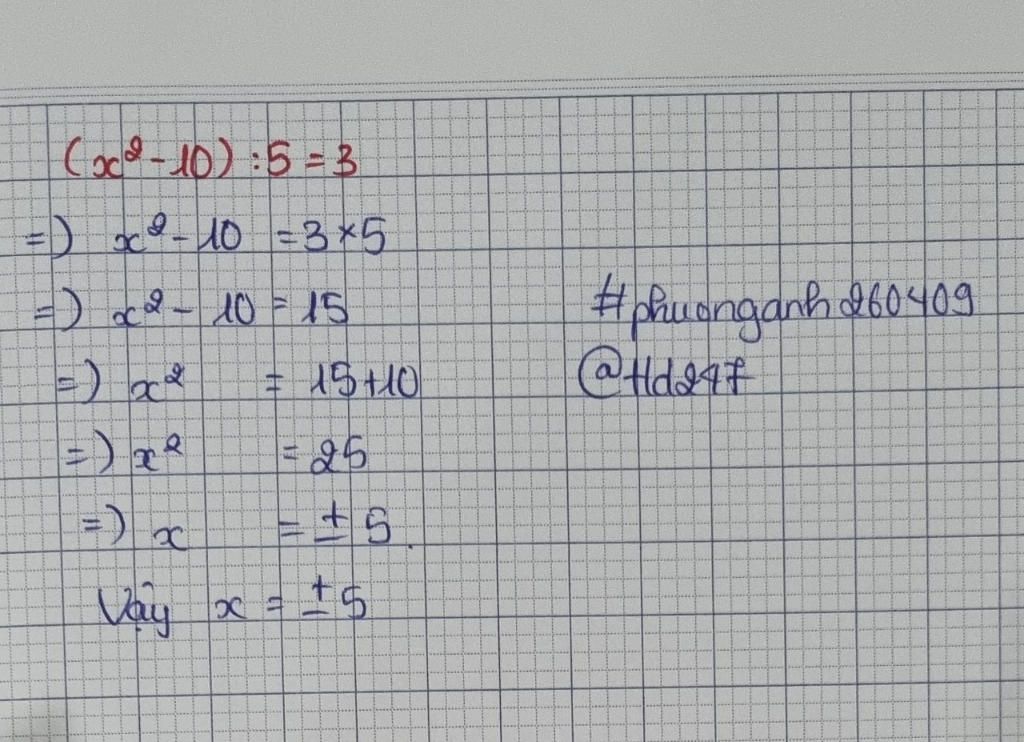 (x² - 10) : 5 = 3
=) x² - 10 = 3 × 5
=) x² - 10 = 15
=) x² = 15 + 10
=) x² = 25
=) x = ± 5.
Vậy x = ± 5
#phuonganh260409
@Hd247